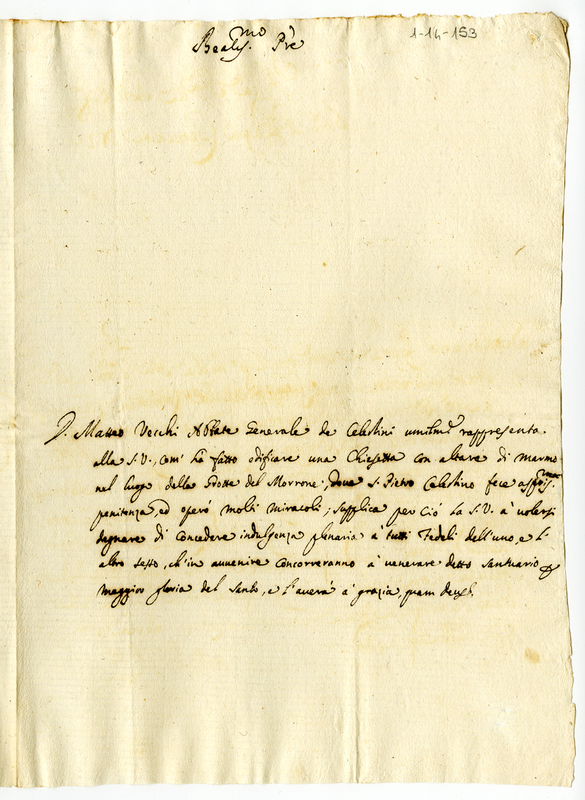 1-14-153
Beatis.mo Prè
D. Matteo Vecchi Abbate Generale de Celestini umilmte rappresenta
alla S.V., com' hà fatto edificare una Chiesetta con altare di marmo
nel luogo della Grotte del Morrone, dove S. Pietro Celestino fece aspris.ma
penitenza, ed operò molti miracoli; supplica per ciò la S.V. à volersi
degnare di concedere indulgenza plenaria à tutti Fedeli dell'uno, e l'
altro sesso, ch'in avvenire concorreranno à venerare detto santuario à
maggior gloria del Santo, e l'averà à grazia, quam deus